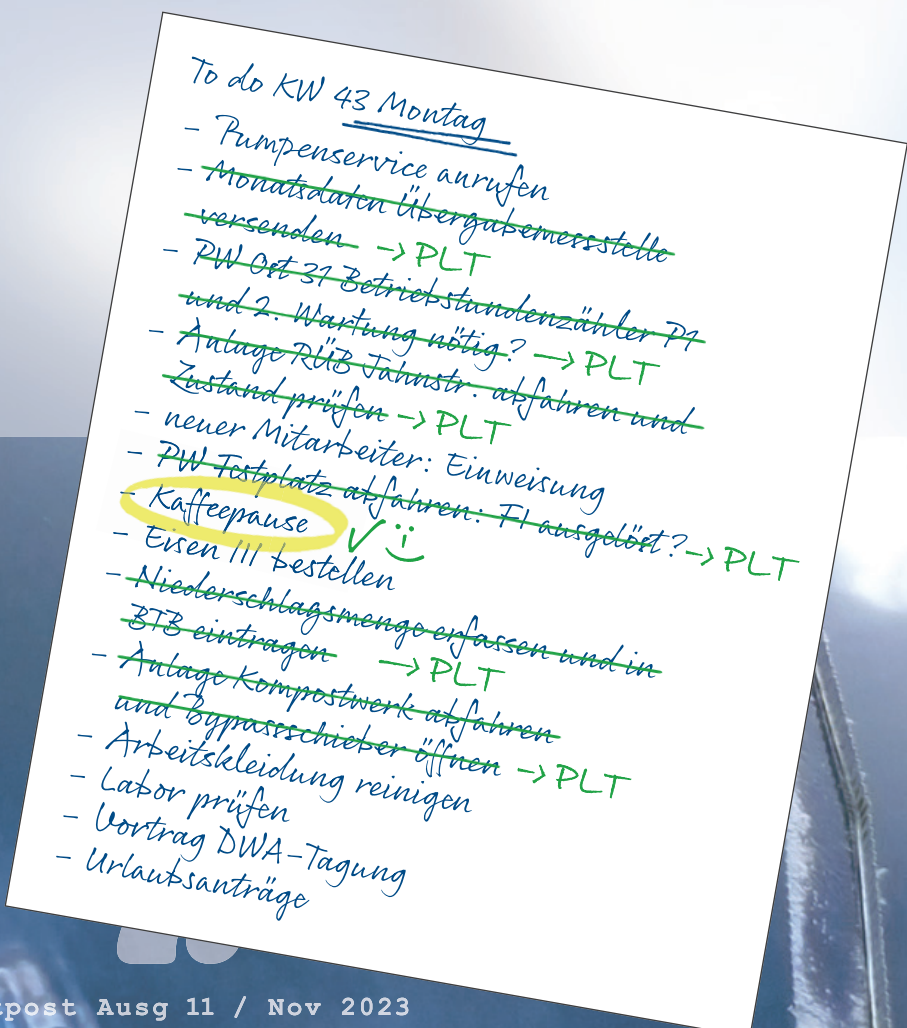 To do KW 43 Montag
- Pumpenservice anrufen
- Monatsdaten Übergabemessstelle
versenden → PLT
- PW Ost 31 Betriebstundenzähler P1
und 2. Wartung nötig? → PLT
- Anlage RÜB Jahnstr. abfahren und
Zustand prüfen → PLT
- neuer Mitarbeiter: Einweisung
- PW Testplatz abfahren: FI ausgelöst? → PLT
- Kaffeepause ✓
- Eisen III bestellen
- Niederschlagsmenge erfassen und in
BTB eintragen → PLT
- Anlage Kompostwerk abfahren
und Bypassschieber öffnen → PLT
- Arbeitskleidung reinigen
- Labor prüfen
- Vortrag DWA-Tagung
- Urlaubsanträge
post Ausg 11 / Nov 2023